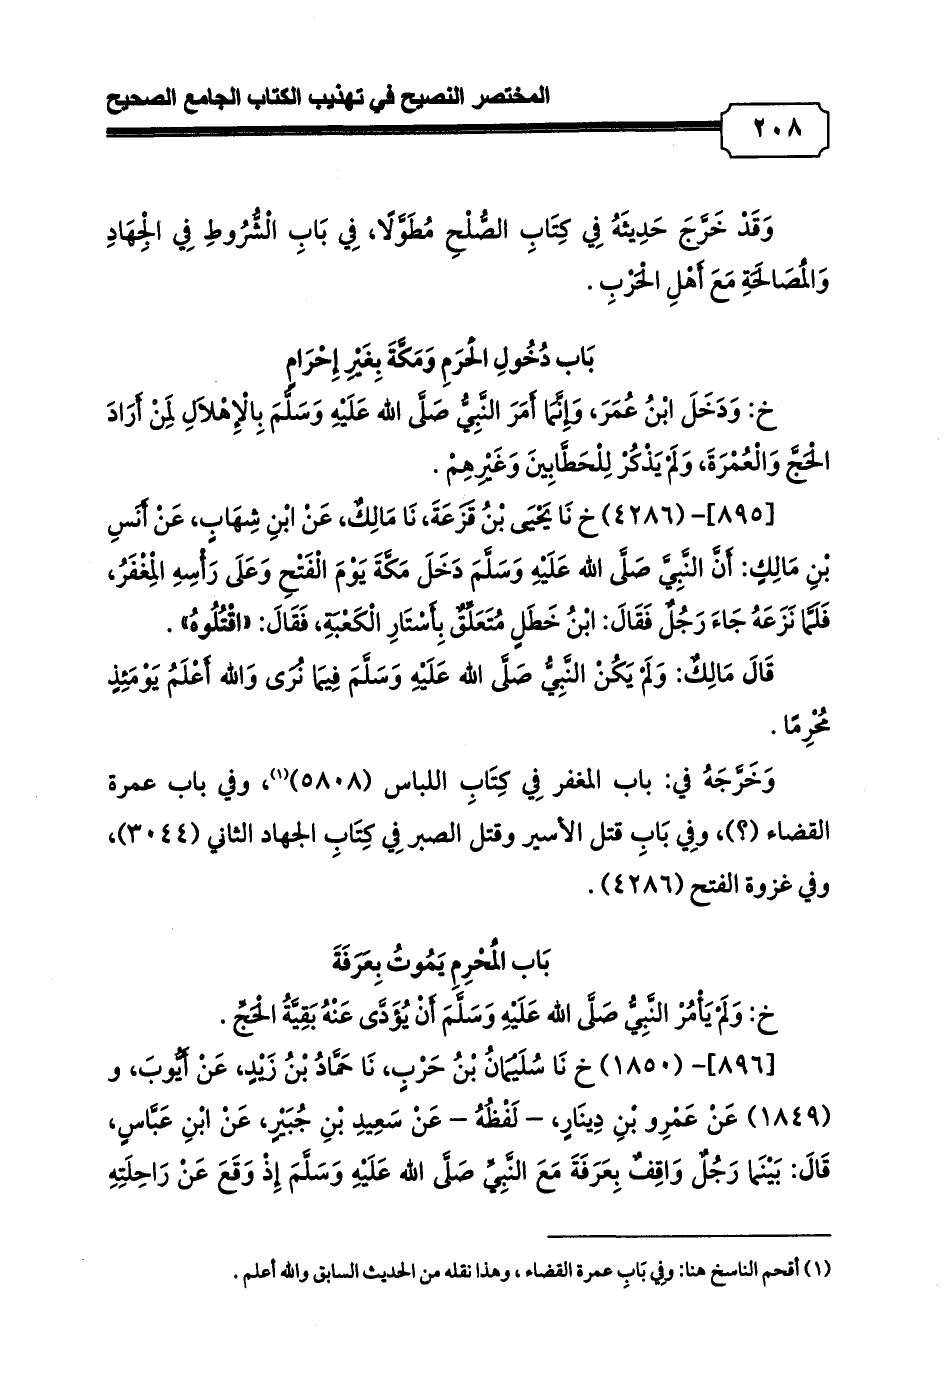 المختصر النصيح في تهذيب الكتاب الجامع الصحيح
٢٠٨
وَقَدْ خَرَّجَ حَدِيثَهُ فِي كِتَابِ الصُّلْحِ مُطَوَّلًا، فِي بَابِ الْشُّرُوطِ فِي الْجِهَادِ
وَالْمُصَالَحَةِ مَعَ أَهْلِ الْحَرْبِ .
بَاب دُخُولِ الْحَرَمِ وَمَكَّةَ بِغَيْرِ إِحْرَامٍ
خ: وَدَخَلَ ابْنُ عُمَرَ، وَإِنَّمَا أَمَرَ النَّبِيُّ صَلَّى الله عَلَيْهِ وَسَلَّمَ بِالْإِهْلاَلِ لِمَنْ أَرَادَ
الْحَجَّ وَالْعُمْرَةَ، وَلَمْ يَذْكُرْ لِلْحَطَّابِينَ وَغَيْرِهِمْ .
[٨٩٥]- (٤٢٨٦) خ نَا يَحْيَى بْنُ قَزَعَةَ، نَا مَالِكٌ، عَنْ ابْنِ شِهَابٍ، عَنْ أَنَسِ
بْنِ مَالِكٍ: أَنَّ النَّبِيَّ صَلَّى الله عَلَيْهِ وَسَلَّمَ دَخَلَ مَكَّةَ يَوْمَ الْفَتْحِ وَعَلَى رَأْسِهِ الْمِغْفَرُ،
فَلَمَّا نَزَعَهُ جَاءَ رَجُلٌ فَقَالَ: ابْنُ خَطَلٍ مُتَعَلِّقٌ بِأَسْتَارِ الْكَعْبَةِ، فَقَالَ: «اقْتُلُوهُ» .
قَالَ مَالِكٌ: وَلَمْ يَكُنْ النَّبِيُّ صَلَّى الله عَلَيْهِ وَسَلَّمَ فِيمَا نُرَى وَالله أَعْلَمُ يَوْمَئِذٍ
مُحْرِمًا .
وَخَرَّجَهُ في: باب المغفر فِي كِتَابِ اللباس (٥٨٠٨)(١)، وفي باب عمرة
القضاء (؟)، وفِي بَابِ قتل الأسير وقتل الصبر فِي كِتَابِ الجهاد الثاني (٣٠٤٤)،
وفي غزوة الفتح (٤٢٨٦).
بَاب الْمُحْرِمِ يَمُوتُ بِعَرَفَةَ
خ: وَلَمْ يَأْمُرْ النَّبِيُّ صَلَّى الله عَلَيْهِ وَسَلَّمَ أَنْ يُؤَدَّى عَنْهُ بَقِيَّةُ الْحَجِّ .
[٨٩٦]- (١٨٥٠) خ نَا سُلَيْمَانُ بْنُ حَرْبٍ، نَا حَمَّادُ بْنُ زَيْدٍ، عَنْ أَيُّوبَ، و
(١٨٤٩) عَنْ عَمْرِو بْنِ دِينَارٍ، – لَفْظُهُ – عَنْ سَعِيدِ بْنِ جُبَيْرٍ، عَنْ ابْنِ عَبَّاسٍ،
قَالَ: بَيْنَمَا رَجُلٌ وَاقِفٌ بِعَرَفَةَ مَعَ النَّبِيِّ صَلَّى الله عَلَيْهِ وَسَلَّمَ إِذْ وَقَعَ عَنْ رَاحِلَتِهِ
(١) أقحم الناسخ هنا: وفِي بَابِ عمرة القضاء ، وهذا نقله من الحديث السابق والله أعلم .